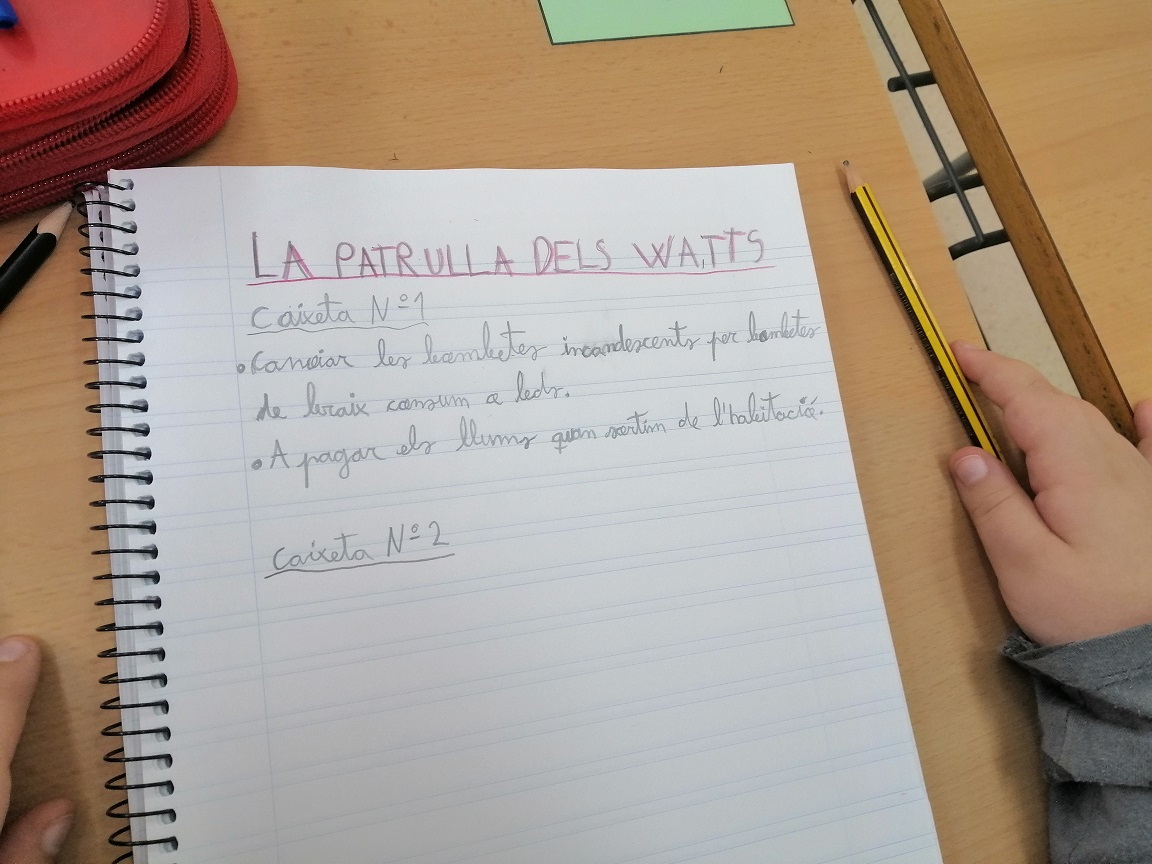 LA PATRULLA DELS WATTS
Caixeta Nº1
• Canviar les bombetes incandescents per bombetes
de baix consum a leds.
• A pagar els llums quan sortim de l'habitació.
Caixeta Nº2